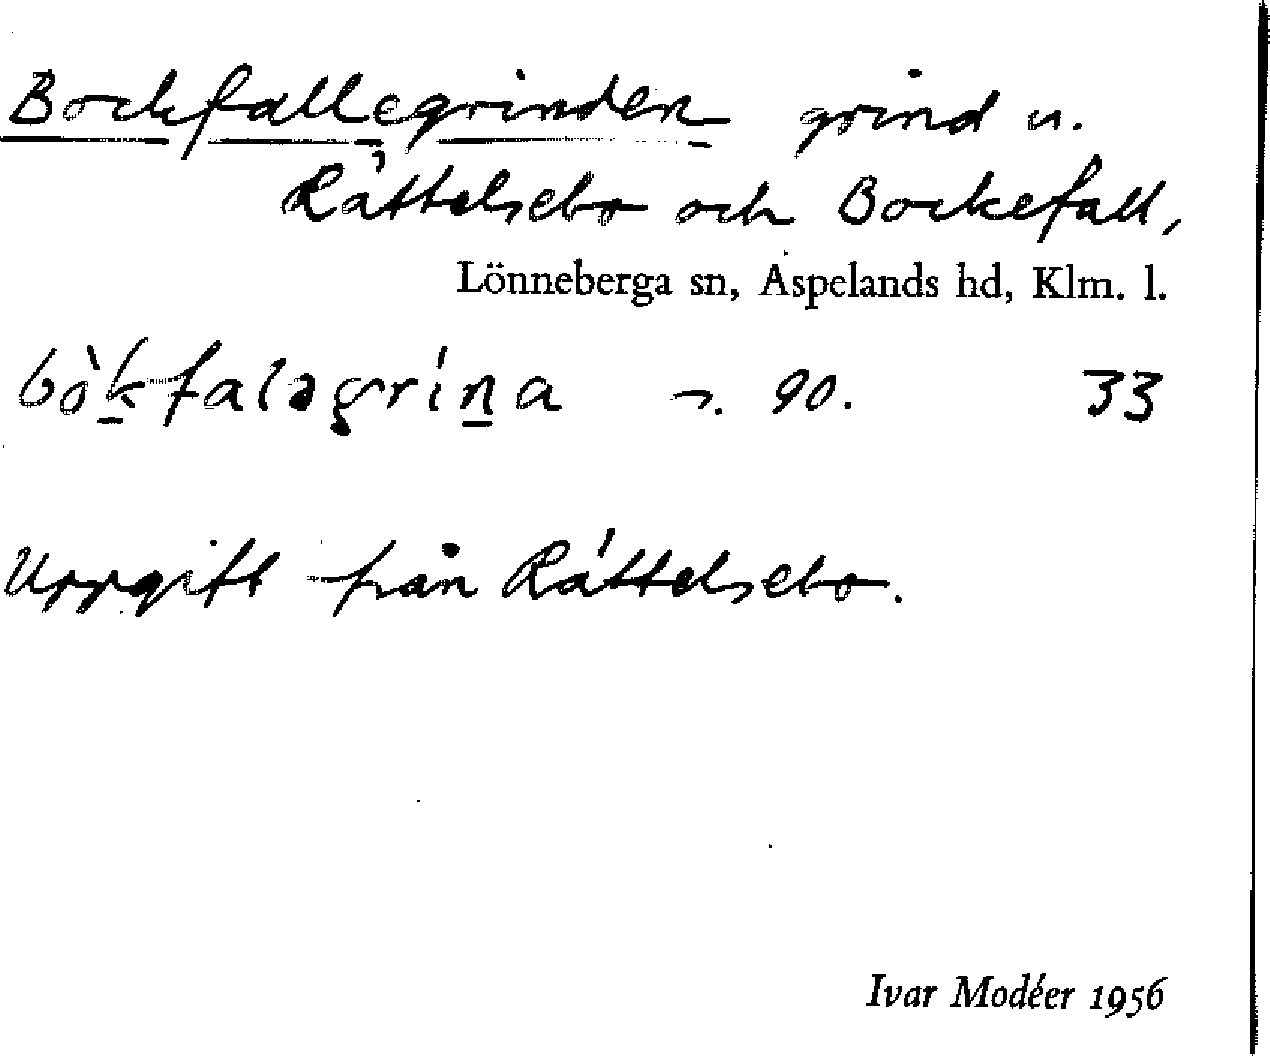 Bockfallegrinden grind u.
Ráttelsebo och Bockefall,
Lönneberga sn, Aspelands hd, Klm. l.
bòk̠faləgrín̠a ¬. 90. 33
Uppgift från Ráttelsebo.
Ivar Modéer 1956